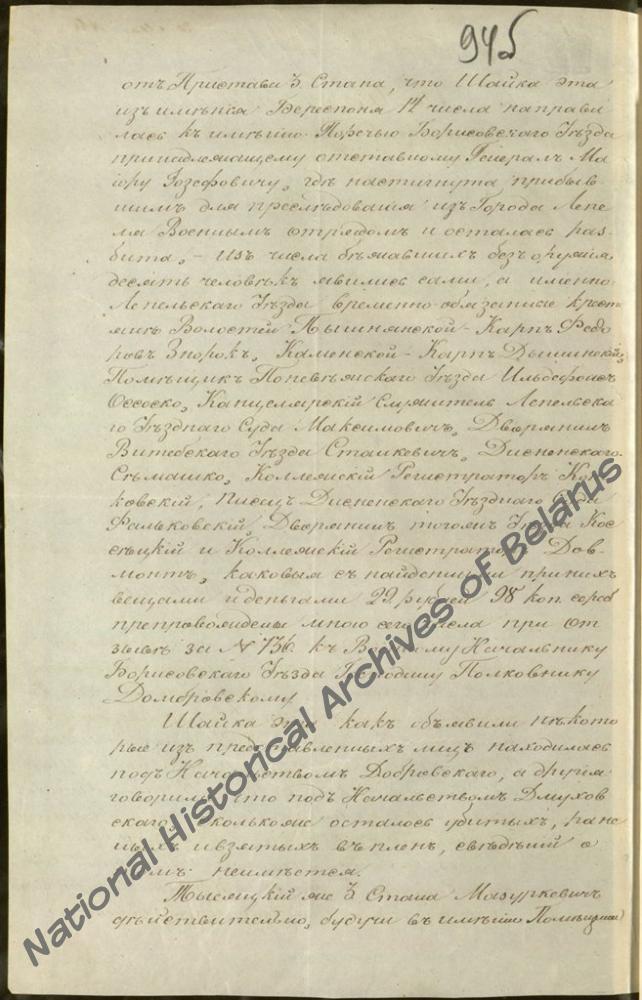 94б
отъ Пристава 3 Стана, что Шайка эта
изъ имѣнія Береспоня 14 числа направи
лась къ имѣнію Поречью Борисовскаго Уѣзда
принадлежащему отставному Генералъ Ма
іору Іозефовичу, гдѣ настигнута прибыв
шимъ для преслѣдованія изъ Города Лепе
ля Военнымъ отрядомъ и осталась раз
бита, - Изъ числа бѣжавшихъ безъ оружія
десять человѣкъ явились сами, а именно:
Лепельскаго Уѣзда временно-обязанные крест
яне Волостей Пышнянской - Карпъ Федо
ровъ, Каменской - Карпъ Дышинскій,
Помѣщикъ Поневѣжскаго Уѣзда Ильдефонсъ
Оссоско, Канцелярскій Служитель Лепельска
го Уѣзднаго Суда Максимовичъ, Дворянинъ
Витебскаго Уѣзда Сташкевичъ, Дисненскаго
Сѣмашко, Коллежскій Регистраторъ
ковскій, Писецъ Дисненскаго Уѣзднаго Суда
Фальковскій, Дворянинъ тогожъ Уѣзда Кос
сецкій и Коллежскій Регистраторъ Дов
монтъ, каковые съ найденными при нихъ
вещами и деньгами 29 рублей 98 коп. сереб
препровождены мною сего числа при от
зывѣ за № 736 къ Военному Начальнику
Борисовскаго Уѣзда Господину Полковнику
Домбровскому
Шайка эта какъ объявили нѣкото
рые изъ представленныхъ лицъ находилась
подъ Начальствомъ Добровскаго, а другіе
говорили что подъ Начальствомъ Дмухов
скаго, сколькоже осталось убитыхъ, ране
ныхъ и взятыхъ въ плѣнъ, свѣдѣній о
томъ неимѣется.
Тысяцкій же 3 Стана Мазуркевичъ
дѣйствительно, будучи въ имѣніи Помѣщика
National Historical Archives of Belarus